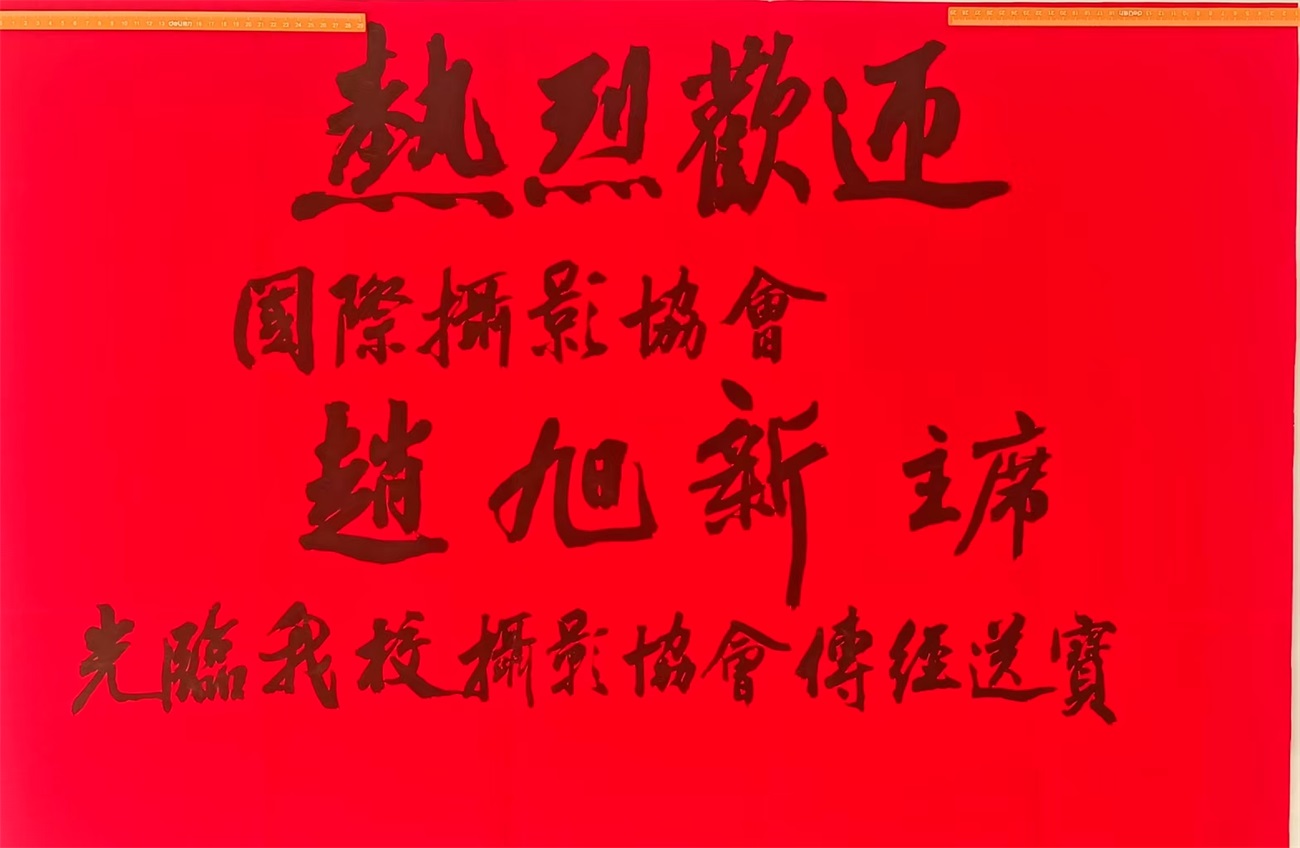 熱烈歡迎
國際攝影協會
趙旭新 主席
光臨我校攝影協會傳經送寶